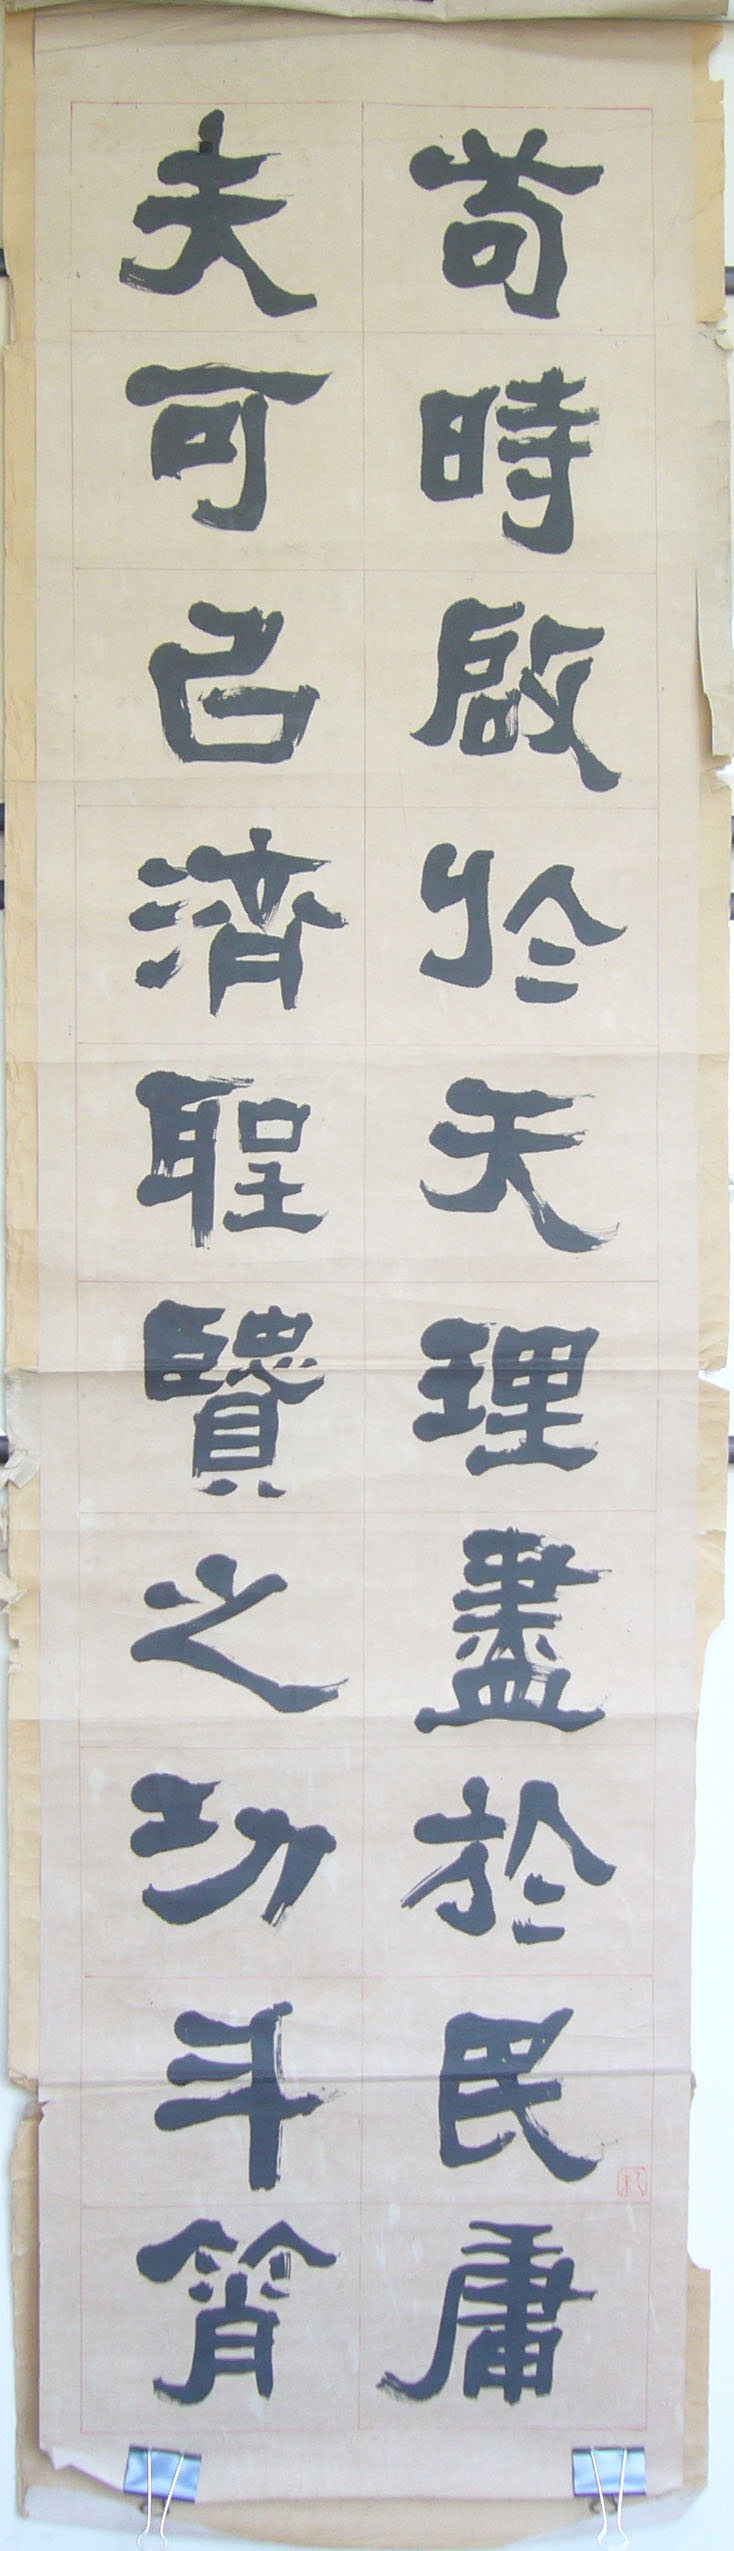 苟時啟於天理盡於民庸
夫可㠯濟聖賢之功斗筲